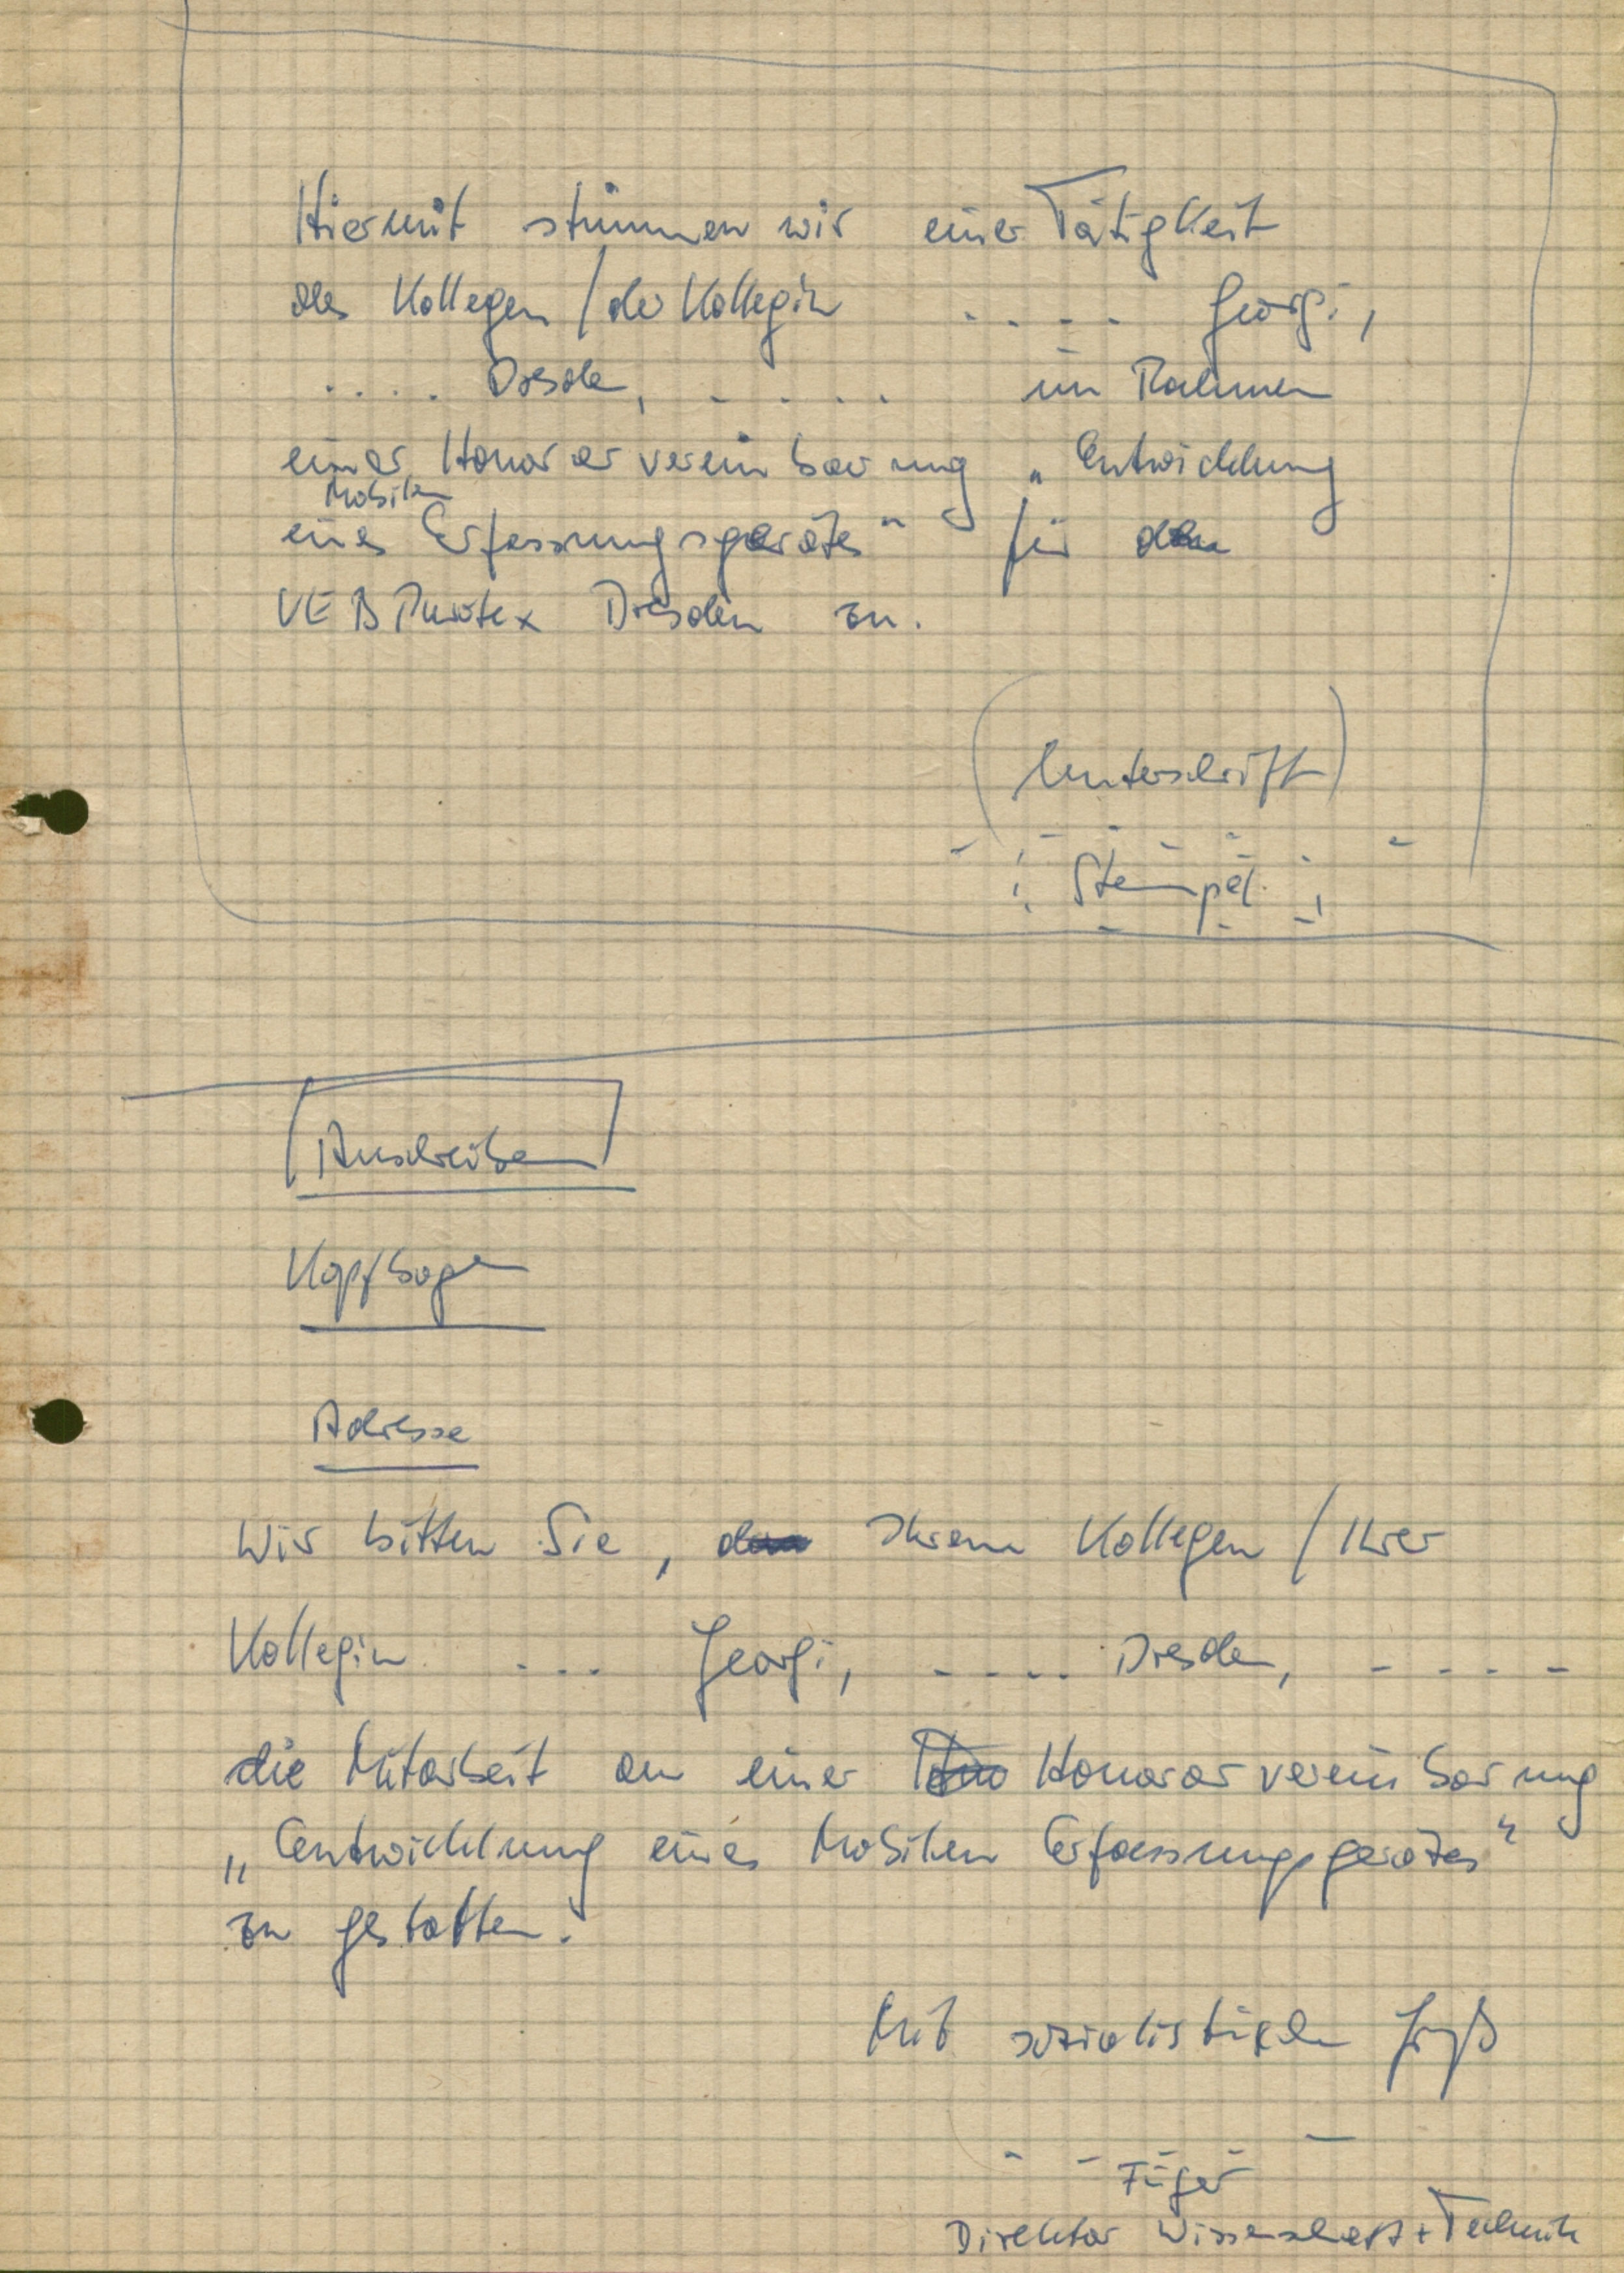 Hiermit stimmen wir einer Tätigkeit
des Kollegen / der Kollegin .... Georgi,
.... Dresden, ..... im Rahmen
einer Honorarvereinbarung „Entwicklung
Mobilen
eines Erfassungsgerätes“ für den
VEB Purotex Dresden zu.
(Unterschrift)
Stempel
Anschreiben
Kopfbogen
Adresse
Wir bitten Sie, Ihrem Kollegen / Ihrer
Kollegin ... Georgi, .... Dresden, ----
die Mitarbeit an einer Honorarvereinbarung
„Entwicklung eines Mobilen Erfassungsgerätes“
zu gestatten.
Mit sozialistischem Gruß
Füger
Direktor Wissenschaft + Technik